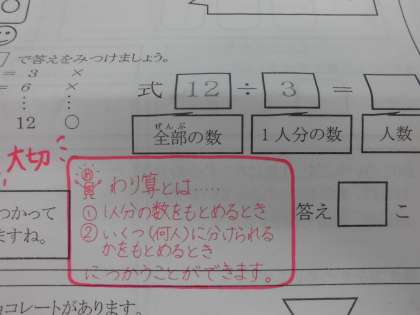 で答えをみつけましょう。
= 3 ×
= 6 ×
12 ○
式 12 ÷ 3 =
ぜんぶ
全部の数 1人分の数 人数
大切
わり算とは……
① 1人分の数をもとめるとき
② いくつ(何人)に分けられる
かをもとめるとき
につかうことができます。
つかって
ますね。
答え こ
コレートがあります。